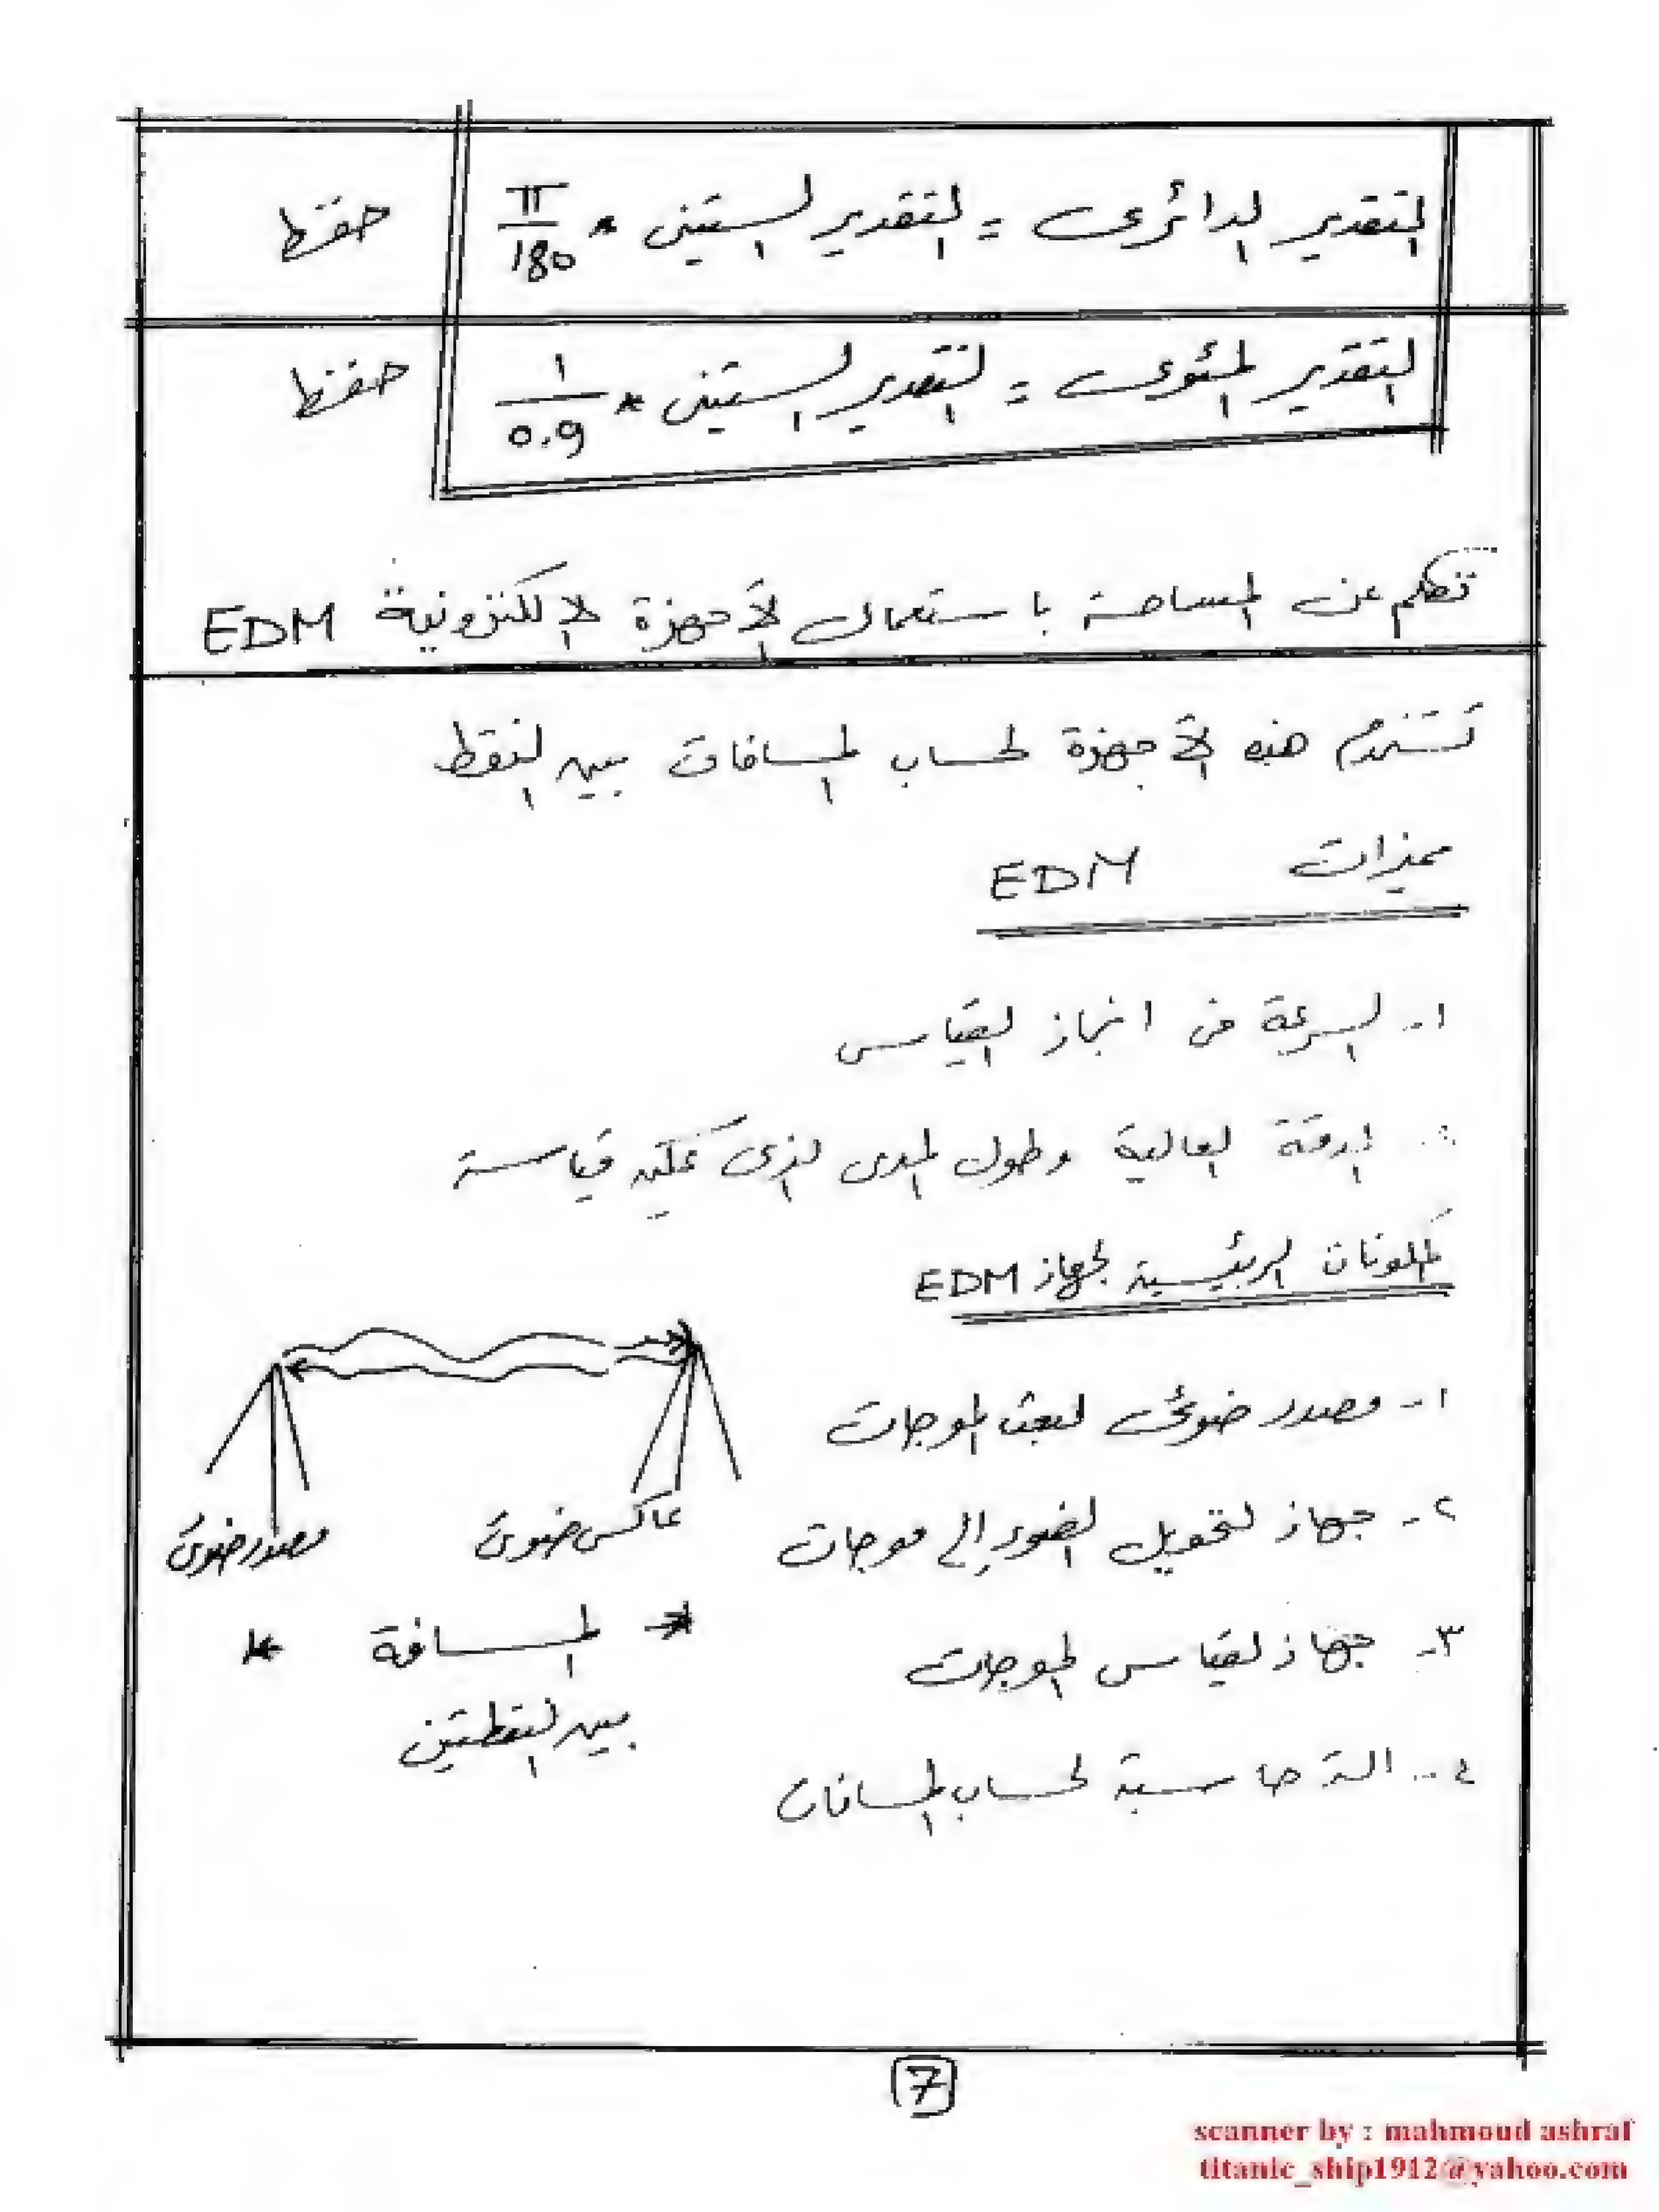 التقدير الدائرى = التقدير الستينى * π/180 حفظ
التقدير المئوى = التقدير الستينى * 1/0.9 حفظ
تكلم عن المساحة باستعمال الأجهزة الالكترونية EDM
تستخدم هذه الأجهزة لحساب المسافات بين النقط
مميزات EDM
١- السرعة فى انجاز القياس
الدقة العالية وطول المدى الذى يمكن قياسة
المكونات الرئيسية لجهاز EDM
١- مصدر ضوئى لبعث الموجات
٢- جهاز لتحويل الضوء إلى موجات
٣- جهاز لقياس الموجات
٤- الة حاسبة لحساب المسافات
مصدر ضوئى
عاكس ضوئى
المسافة
بين النقطتين
7
scanner by : mahmoud ashraf
titanic_ship1912@yahoo.com